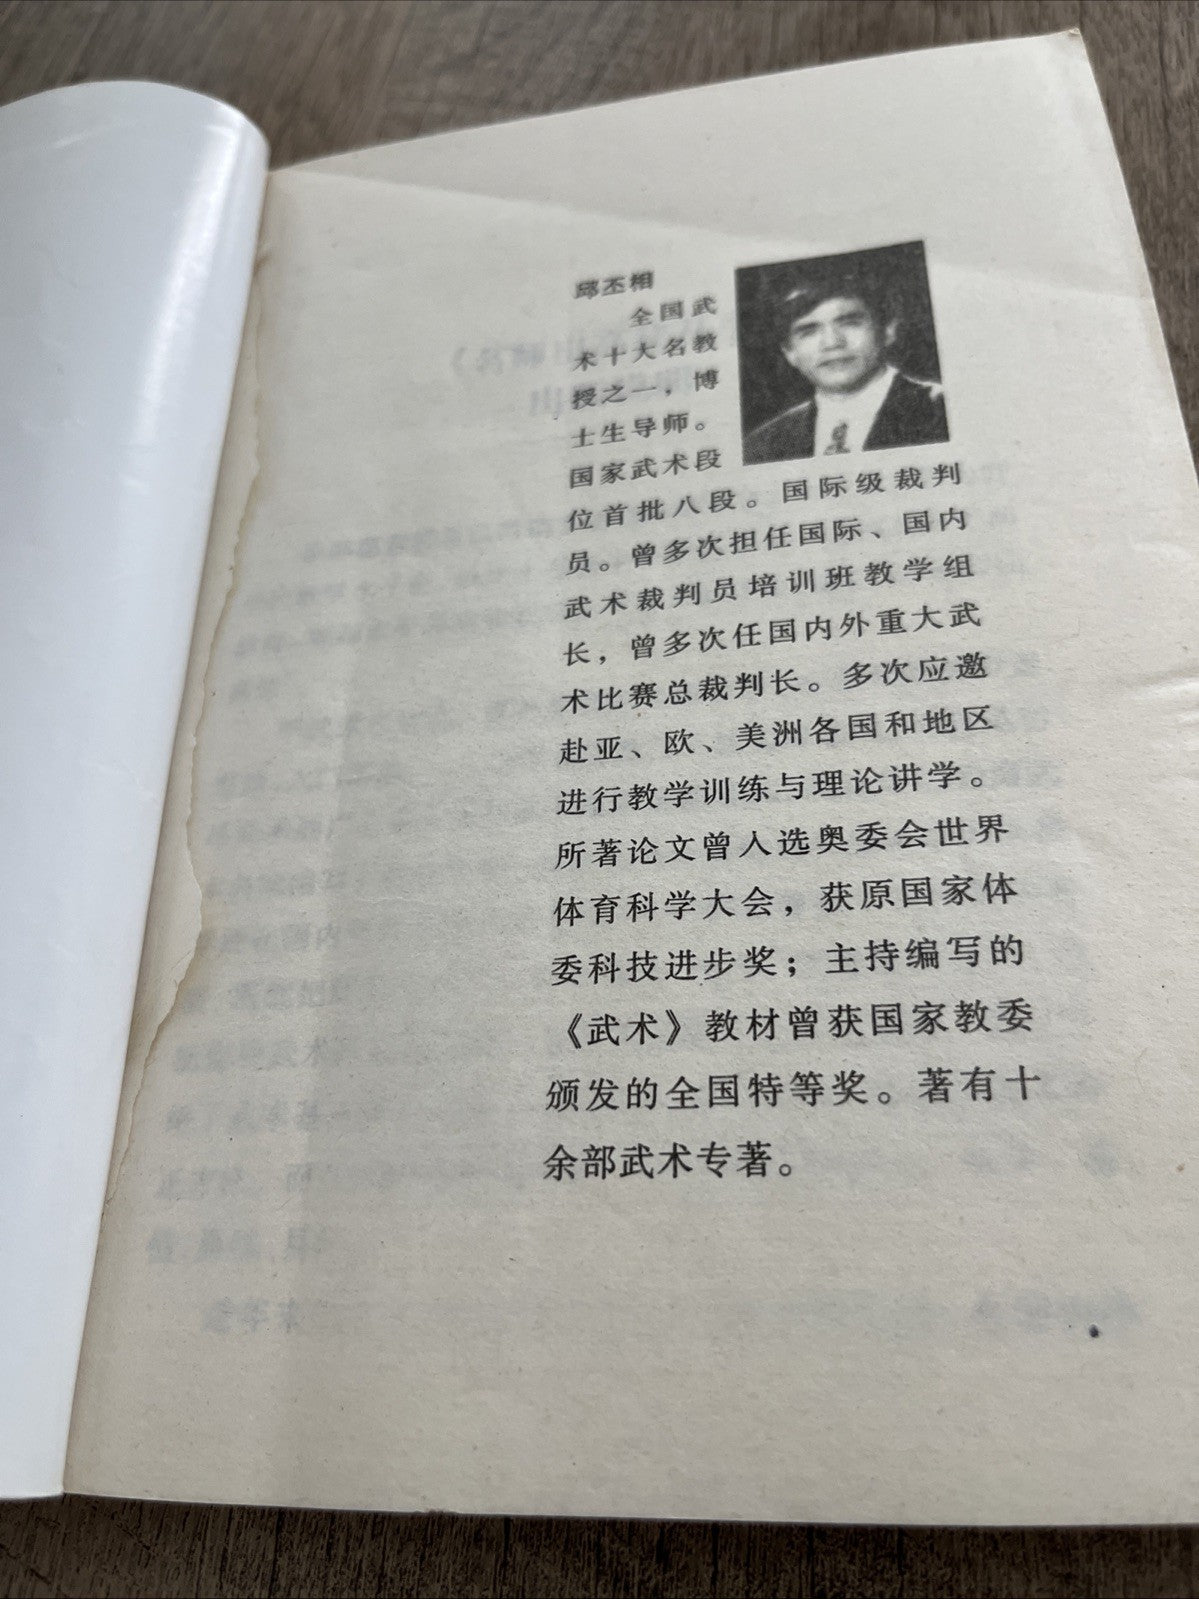 邱丕相
全国武
术十大名教
授之一，博
士生导师。
国家武术段
位首批八段。国际级裁判
员。曾多次担任国际、国内
武术裁判员培训班教学组
长，曾多次任国内外重大武
术比赛总裁判长。多次应邀
赴亚、欧、美洲各国和地区
进行教学训练与理论讲学。
所著论文曾入选奥委会世界
体育科学大会，获原国家体
委科技进步奖；主持编写的
《武术》教材曾获国家教委
颁发的全国特等奖。著有十
余部武术专著。